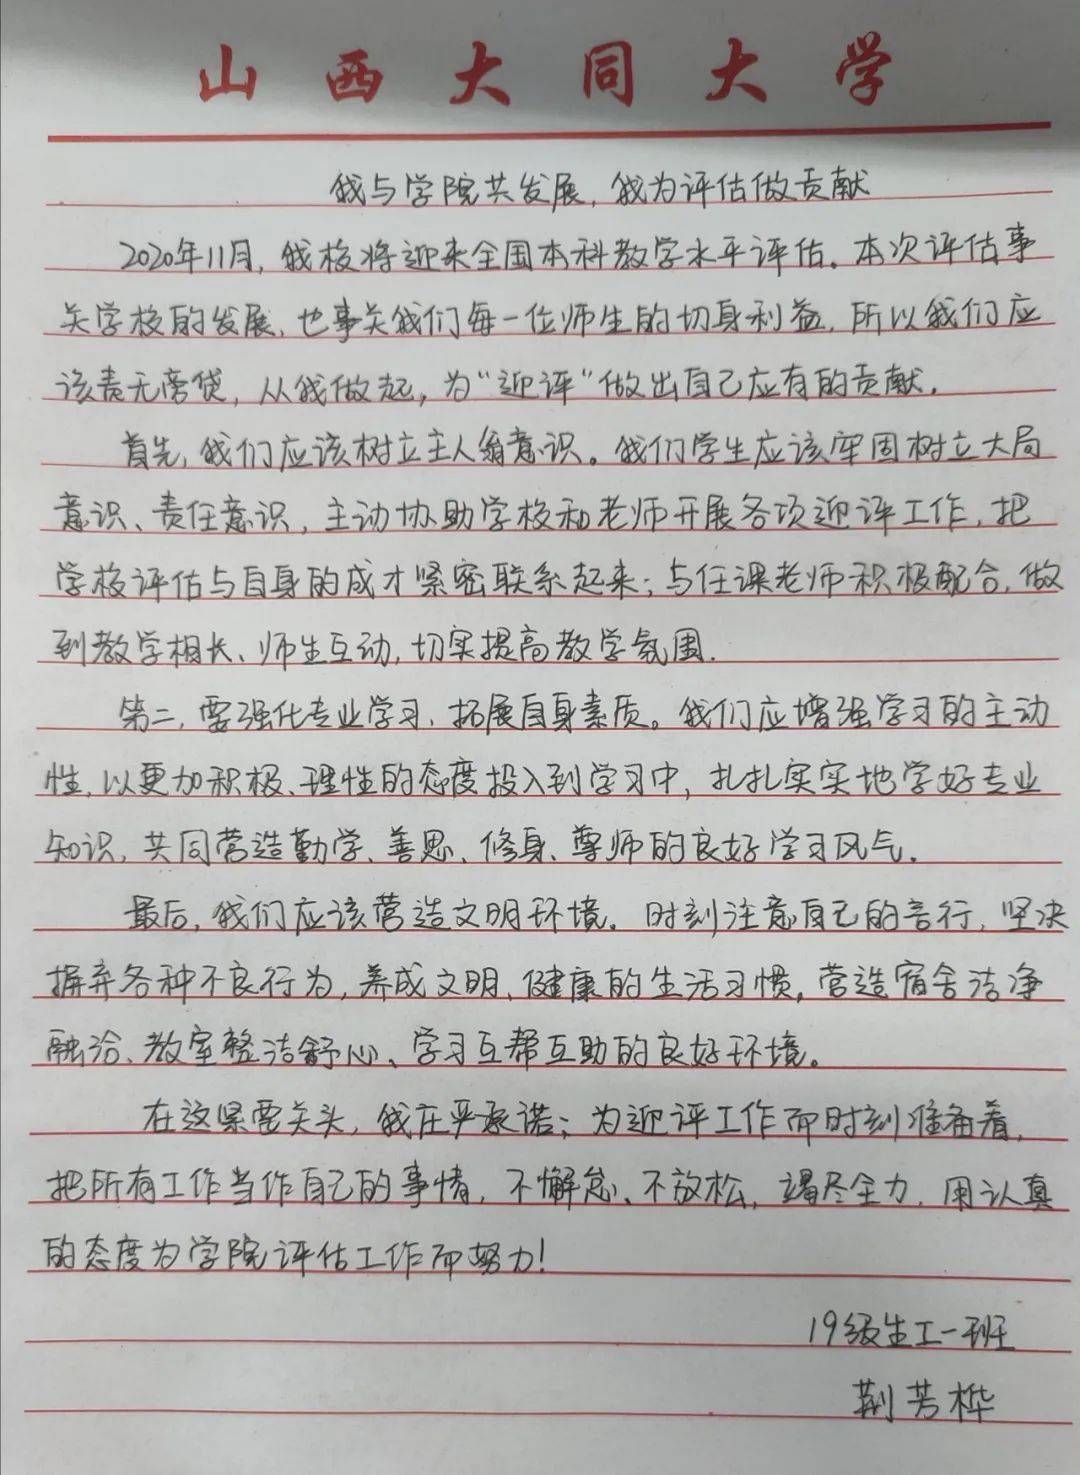 山西大同大学
我与学院共发展，我为评估做贡献
2020年11月，我校将迎来全国本科教学水平评估。本次评估事
关学校的发展，也事关我们每一位师生的切身利益，所以我们应
该责无旁贷，从我做起，为“迎评”做出自己应有的贡献。
首先，我们应该树立主人翁意识。我们学生应该牢固树立大局
意识、责任意识，主动协助学校和老师开展各项迎评工作，把
学校评估与自身的成才紧密联系起来；与任课老师积极配合，做
到教学相长、师生互动，切实提高教学氛围.
第二，要强化专业学习，拓展自身素质。我们应增强学习的主动
性，以更加积极、理性的态度投入到学习中，扎扎实实地学好专业
知识，共同营造勤学、善思、修身、尊师的良好学习风气。
最后，我们应该营造文明环境。时刻注意自己的言行，坚决
摒弃各种不良行为，养成文明、健康的生活习惯，营造宿舍洁净
融洽、教室整洁舒心、学习互帮互助的良好环境。
在这紧要关头，我庄严承诺：为迎评工作而时刻准备着，
把所有工作当作自己的事情，不懈怠、不放松，竭尽全力，用认真
的态度为学院评估工作而努力！
19级生工一班
荆芳桦